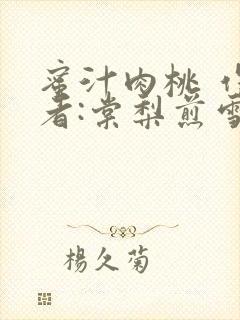 蜜汁肉桃
者:棠梨煎雪
楊久菊